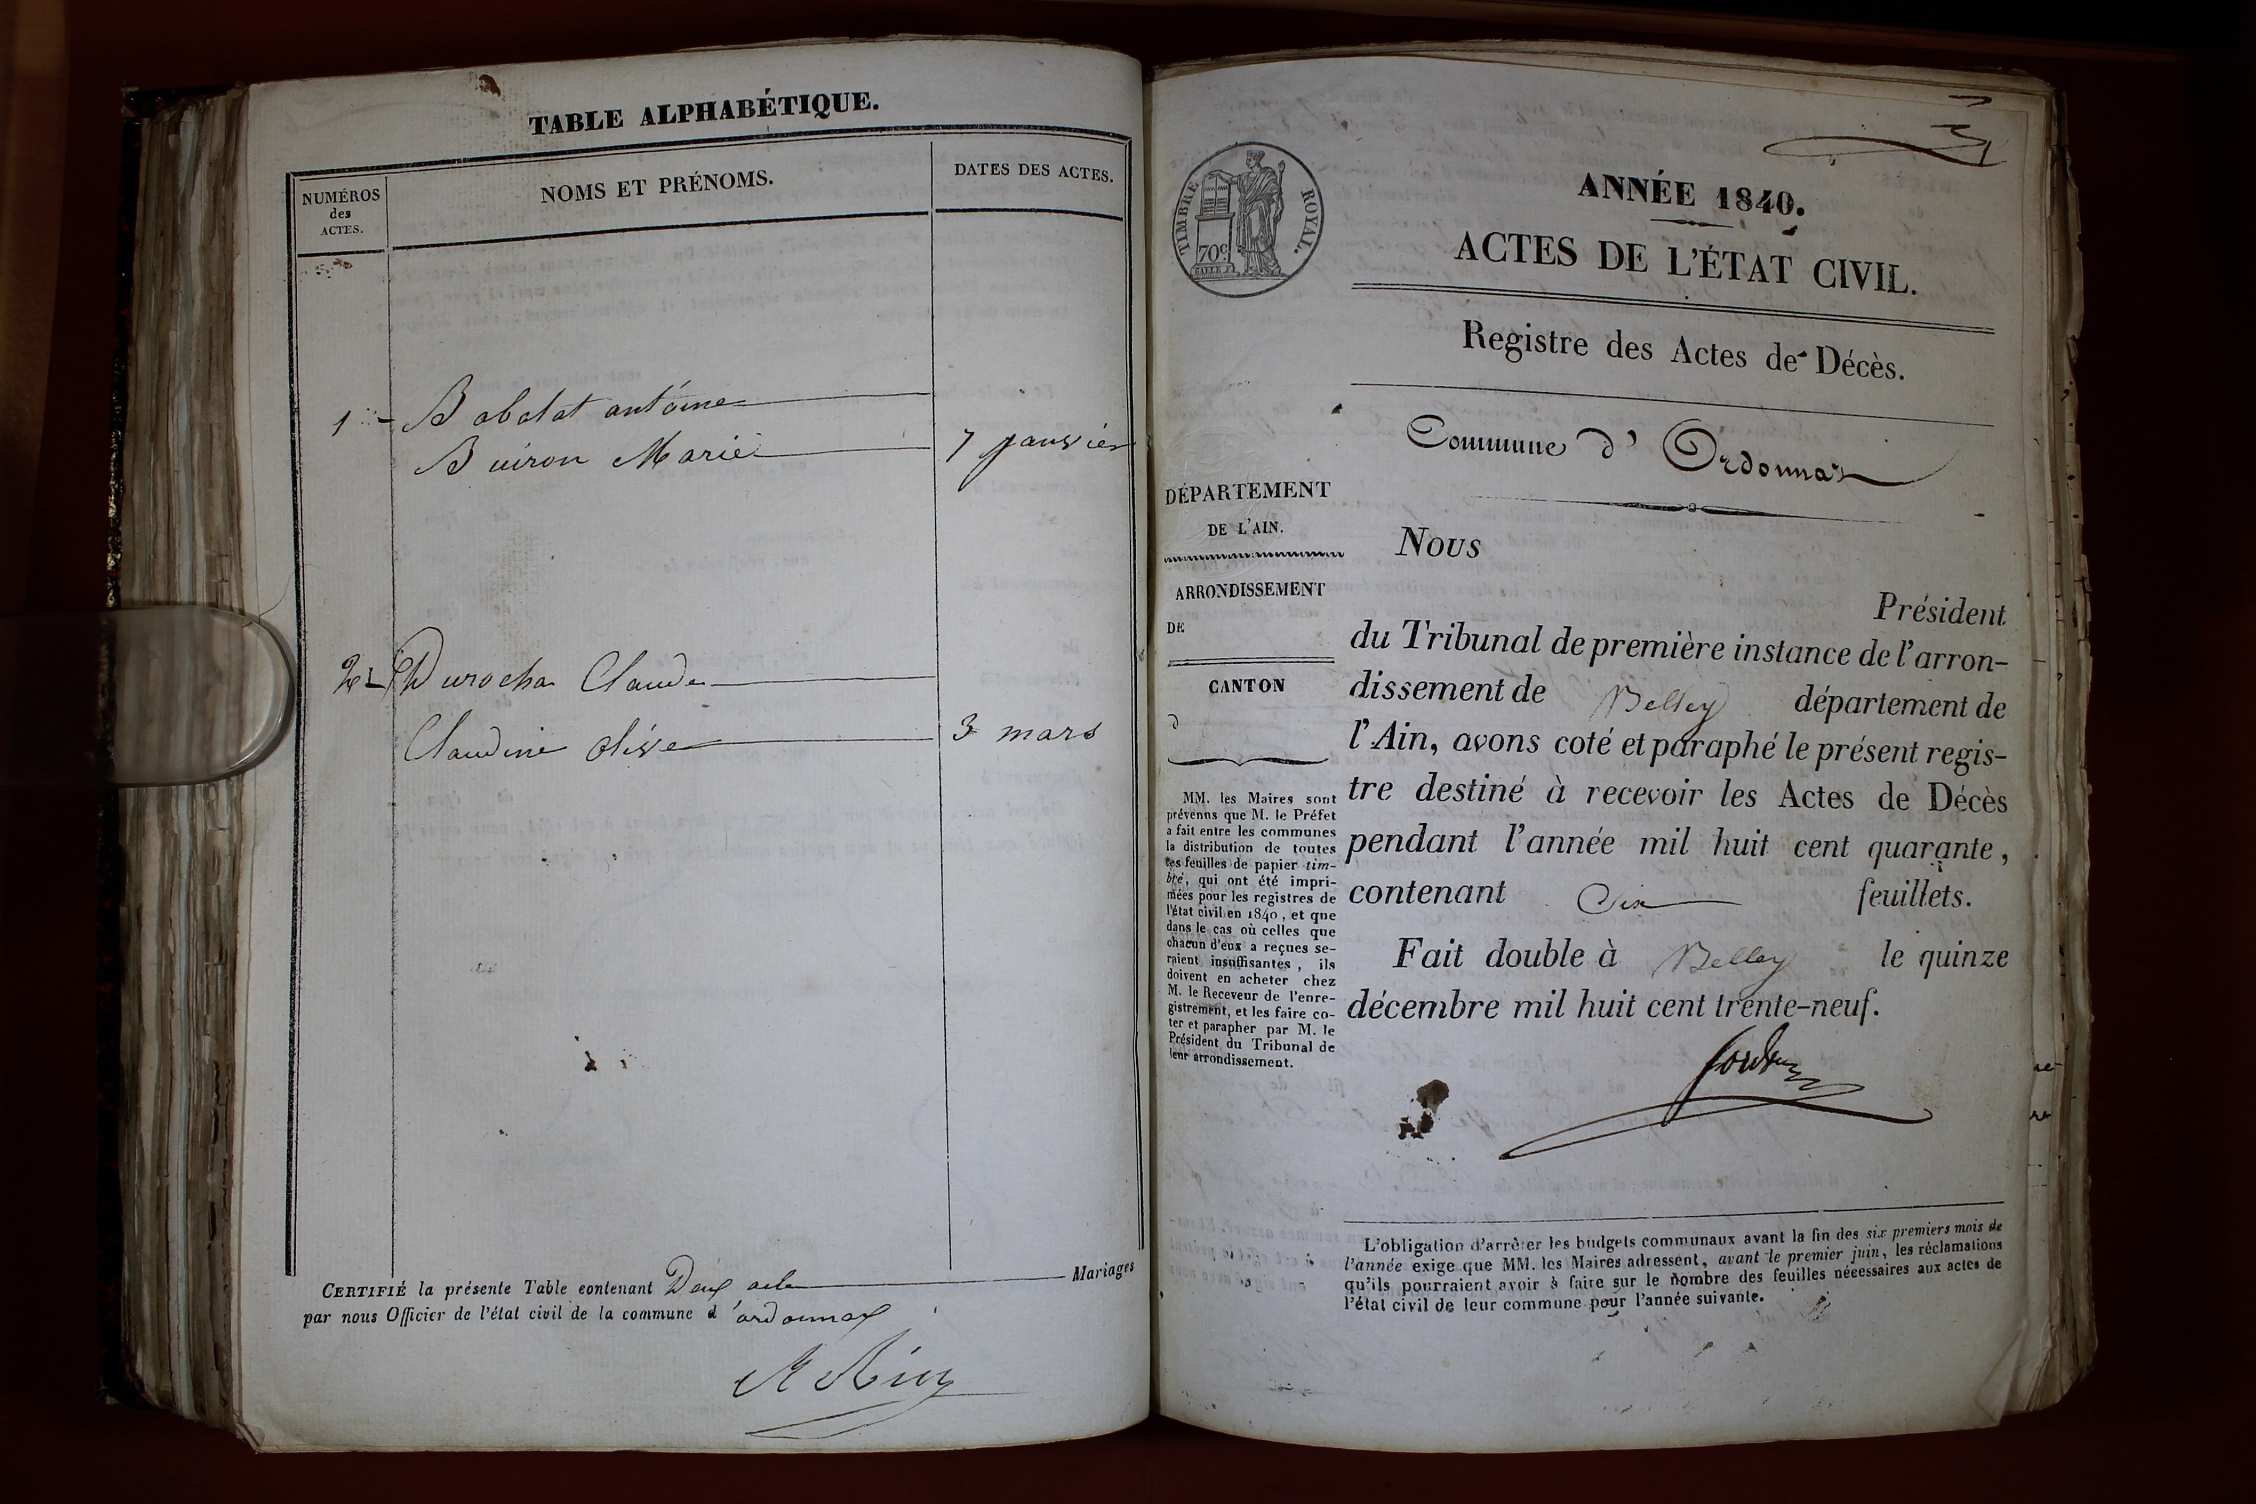 TABLE ALPHABÉTIQUE.
NUMÉROS
des
ACTES.
NOMS ET PRÉNOMS.
DATES DES ACTES.
1 - Babolat antoine
Buiron Marie 7 janvier
2 - Durochat Claude
Claudine Olive 3 mars
CERTIFIÉ la présente Table contenant Deux actes Mariages
par nous Officier de l'état civil de la commune d'ordonnax
TIMBRE ROYAL.
70c
ANNÉE 1840.
ACTES DE L'ÉTAT CIVIL.
Registre des Actes de Décès.
Commune d'Ordonnax
DÉPARTEMENT
DE L'AIN.
ARRONDISSEMENT
DE
CANTON
d
MM. les Maires sont
prévenus que M. le Préfet
a fait entre les communes
la distribution de toutes
les feuilles de papier tim-
bré, qui ont été impri-
mées pour les registres de
l'état civil en 1840, et que
dans le cas où celles que
chacun d'eux a reçues se-
raient insuffisantes, ils
doivent en acheter chez
M. le Receveur de l'enre-
gistrement, et les faire co-
ter et parapher par M. le
Président du Tribunal de
leur arrondissement.
Nous
Président
du Tribunal de première instance de l'arron-
dissement de Belley département de
l'Ain, avons coté et paraphé le présent regis-
tre destiné à recevoir les Actes de Décès
pendant l'année mil huit cent quarante,
contenant Six feuillets.
Fait double à Belley le quinze
décembre mil huit cent trente-neuf.
L'obligation d'arrêter les budgets communaux avant la fin des six premiers mois de
l'année exige que MM. les Maires adressent, avant le premier juin, les réclamations
qu'ils pourraient avoir à faire sur le nombre des feuilles nécessaires aux actes de
l'état civil de leur commune pour l'année suivante.